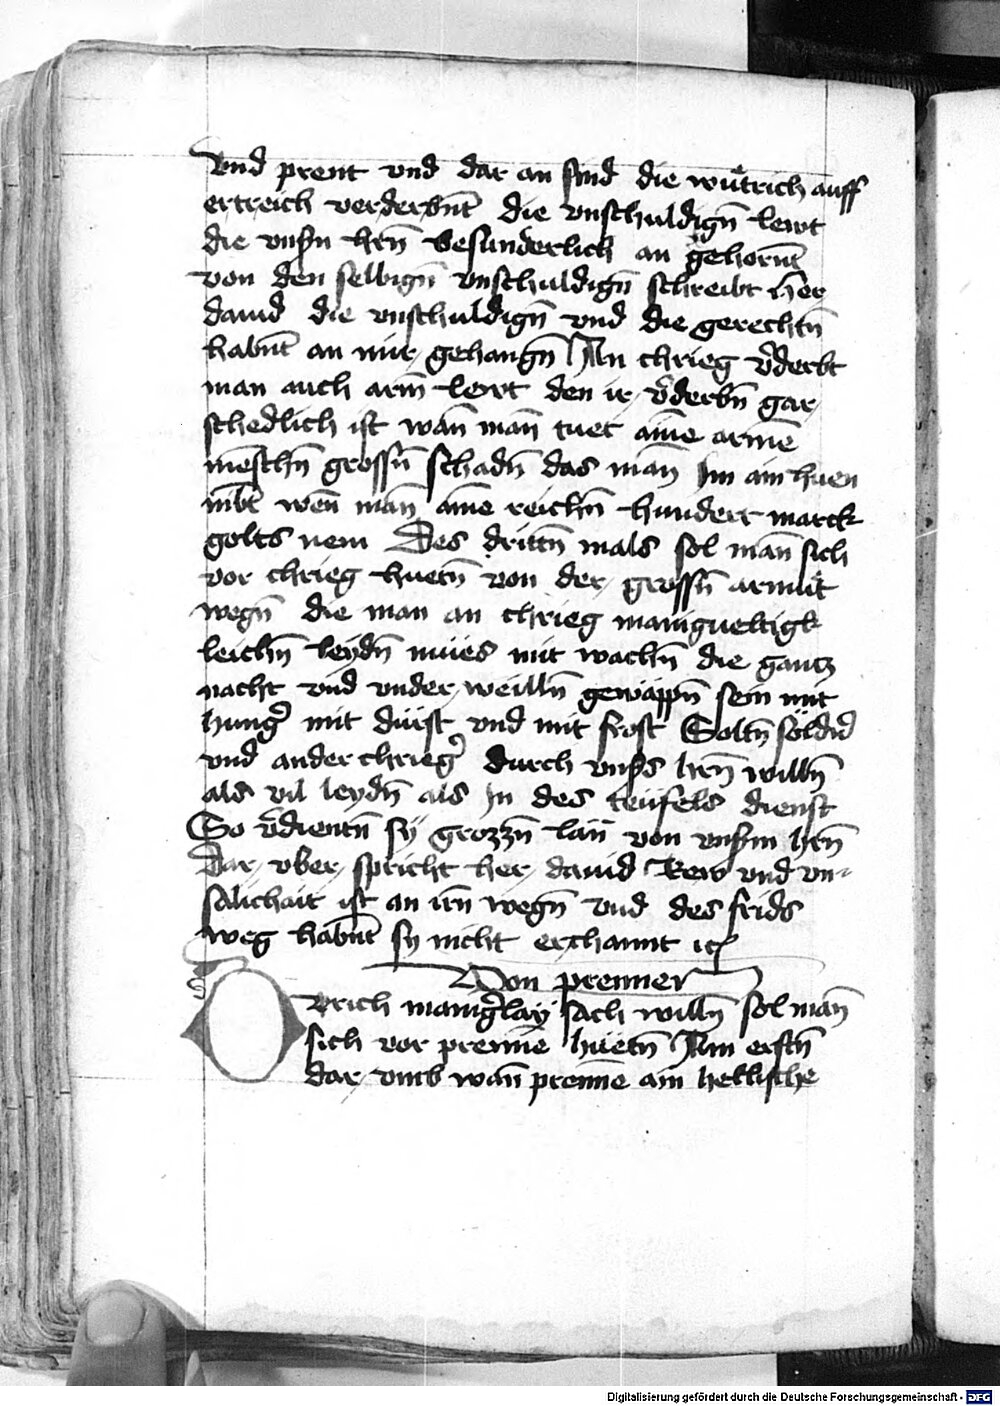 Vnd prent vnd dar an sind die wuͤtrich auff
ertreich verderbn̄t die vnschuldign̄ lewt
die vnsn̄ hrn̄ besunderlich an gehorn̄t
von den selbign̄ vnschuldign̄ schreibt her
dauid die vnschuldign̄ vnd die gerechtn̄
habn̄t an mir gehangn̄ An chrieg v̄derbt
man auch arm̄ lewt den ir v̄derbn̄ gar
schedlich ist wan̄ man̄ tuet aim̄e arm̄e
mēschn̄ grossn̄ schadn̄ das man̄ Im ain huen
nībt wen̄ man̄ aim̄e reichn̄ hundert marck
golts nem Des drittn̄ mals sol man̄ sich
vor chrieg huetn̄ von der grossn̄ armuͤt
wegn̄ die man an chrieg manigueltigk
leichn̄ leydn̄ mües mit wachn̄ die gantz
nacht vnd vnder weilln̄ gewäppn̄ sein mit
hunḡ mit düist vnd mit frost Soltn̄ söldn̄
vnd ander chrieḡ durch vnsß hrn̄ willn̄
als vil leydn̄ als In des teüfels dienst
So v̄dientn̄ sÿ grozzn̄ lān von vnsm̄ hrn̄
Dar vber spricht her dauid Rew vnd vn-
salichait ist an irn̄ wegn̄ vnd des frids
weg habn̄t sy nicht erchannt ec̄
Von prenner
Vrich maniḡlay sach willn̄ sol man̄
sich vor prenne hüetn̄ Am erstn̄
dar vmb wan̄ prenne ain hellische
Digitalisierung gefördert durch die Deutsche Forschungsgemeinschaft - DFG